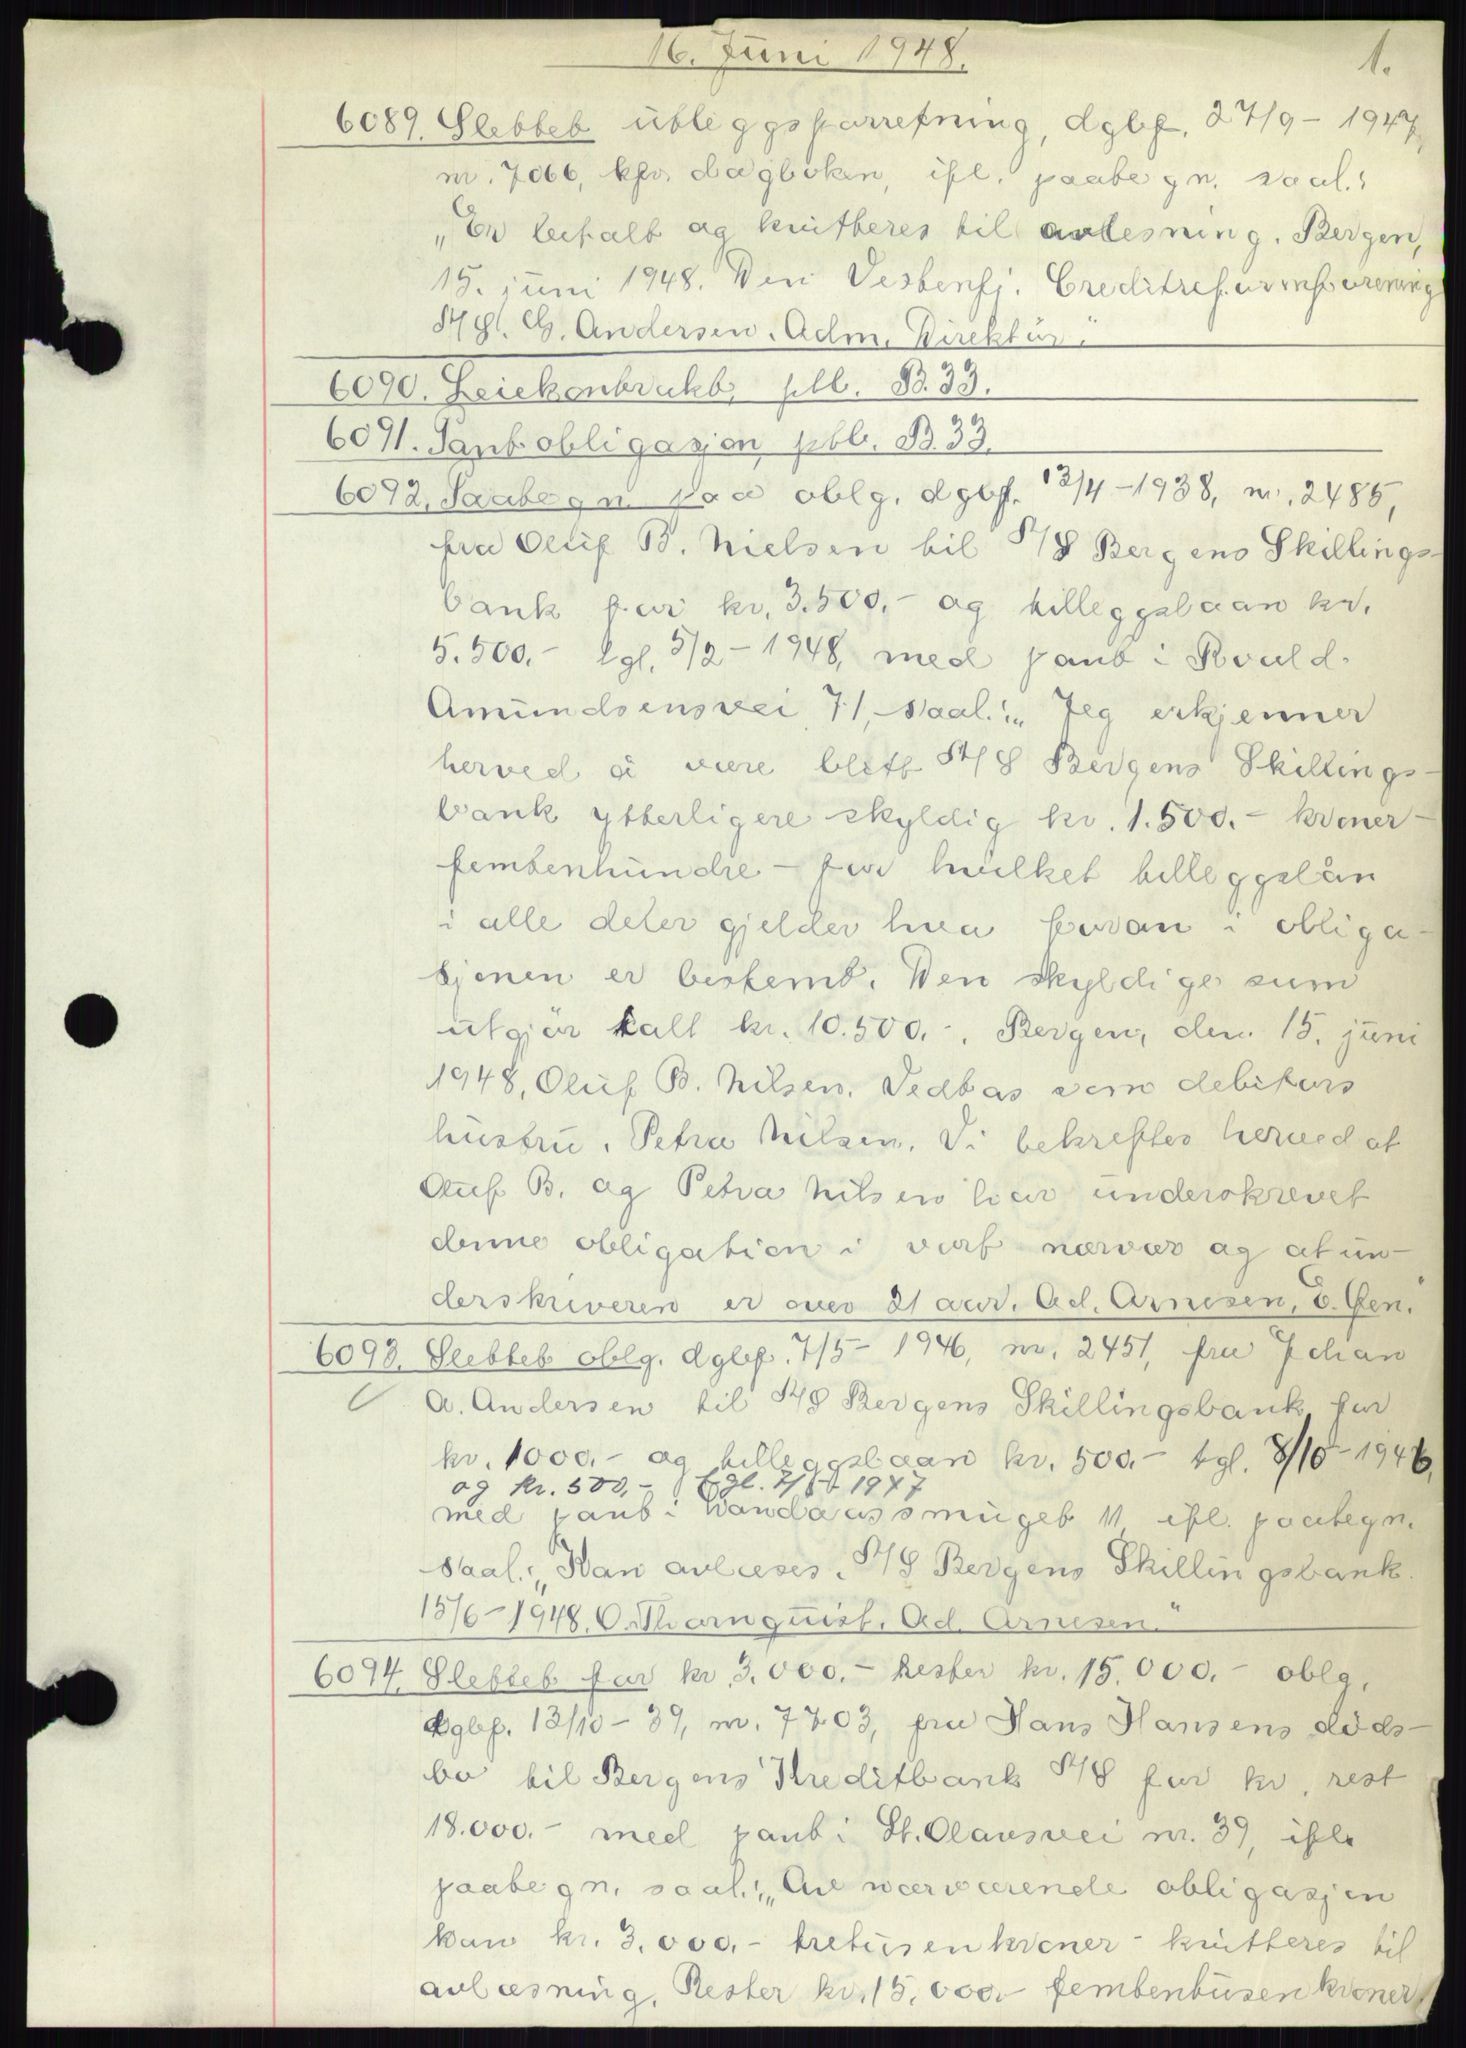 16. Juni 1948.
1.
6089. Slettet utleggsforretning, dgbf. 27/9-1947,
nr. 7066, kfr. dagboken, ifl. paategn. saal.:
„Er betalt og kvitteres til avlesning. Bergen,
15. juni 1948. Den Vestenfj. Creditreformforening
A/S. G. Andersen. Adm. Direktør."
6090. Leiekontrakt, ptb. B.33.
6091. Pantobligasjon, ptb. B.33.
6092. Paategn. paa oblg. dgbf. 12/4-1938, nr. 2485,
fra Oluf B. Nielsen til A/S Bergens Skillings-
bank for kr. 3.500.- og tilleggslaan kr.
5.500.- tgl. 5/2-1948, med pant i Roald
Amundsensvei 71, saal.: „Jeg erkjenner
herved å være blitt A/S Bergens Skillings-
bank ytterligere skyldig kr. 1.500.- kroner-
femtenhundre - for hvilket tilleggslån
i alle deler gjelder hva foran i obliga-
sjonen er bestemt. Den skyldige sum
utgjør ialt kr. 10.500.-. Bergen, den 15. juni
1948, Oluf B. Nilsen. Vedtas som debitors
hustru. Petra Nilsen. Vi bekreftes herved at
Oluf B. og Petra Nilsen har underskrevet
denne obligation i vort nærvær og at un-
derskriveren er over 21 aar. Ad. Arnesen, E. Gen."
6093. Slettet oblg. dgbf. 7/5-1946, nr. 2451, fra Johan
A. Andersen til A/S Bergens Skillingsbank for
kr. 1000.- og tilleggslaan kr. 500.- tgl. 8/10-1946,
og kr. 500,- tgl. 7/5-1947
med pant i smuget 11 ifl. paategn.
saal.: „Kan avlæses. A/S Bergens Skillingsbank.
15/6-1948. O. Thornquist. Ad. Arnesen."
6094. Slettet for kr. 3.000.- rester kr. 15.000.- oblg.
dgbf. 13/10-39, nr. 7703, fra Hans Hansens døds-
bo til Bergens Kreditbank A/S for kr. rest
18.000.- med pant i St. Olavsvei nr. 39, ifl.
paategn. saal.: „Av nærværende obligasjon
kan kr. 3.000.- tretusen kroner - kvitteres til
avlæsning. Rester kr. 15.000.- femtentusen kroner.